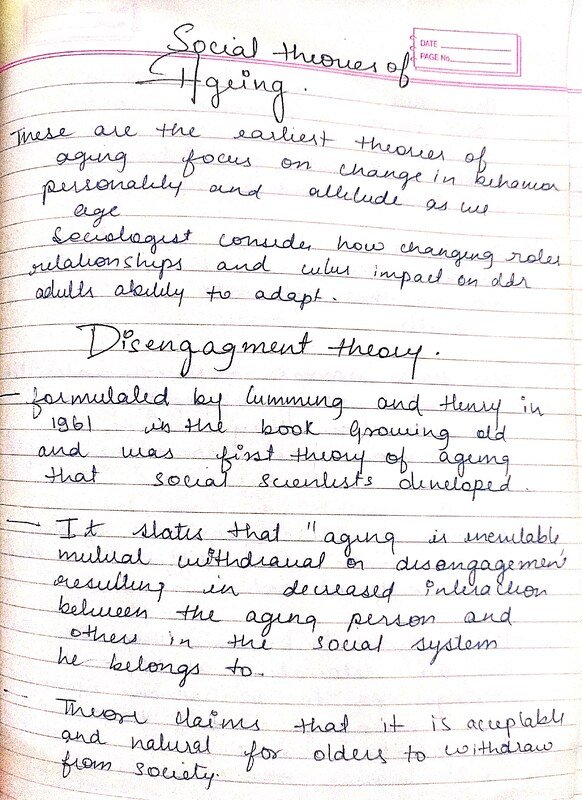 DATE
PAGE No.
Social theories of
Ageing.
These are the earliest theories of
aging focus on change in behavior
personality and attitude as we
age
Sociologist consider how changing roles
relationships and impact on
adults ability to adapt.
Disengagment theory.
- formulated by Cumming and Henry in
1961 in the book Growing old
and was first theory of ageing
that social scientists developed.
- It states that "aging is inevitable
mutual withdrawal or disengagement
resulting in decreased interaction
between the aging person and
others in the social system
he belongs to.
- claims that it is acceptable
and natural for olders to withdraw
from society.